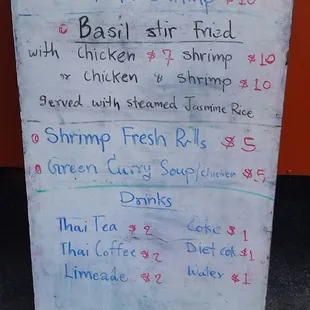 Shrimp $10
Basil stir Fried
with chicken $7 shrimp $10
or chicken & shrimp $10
Served with steamed Jasmine Rice
Shrimp Fresh Rolls $5
Green Curry Soup/chicken $5
Drinks
Thai Tea $2 Coke $1
Thai Coffee $2 Diet cok $1
Limeade $2 Water $1